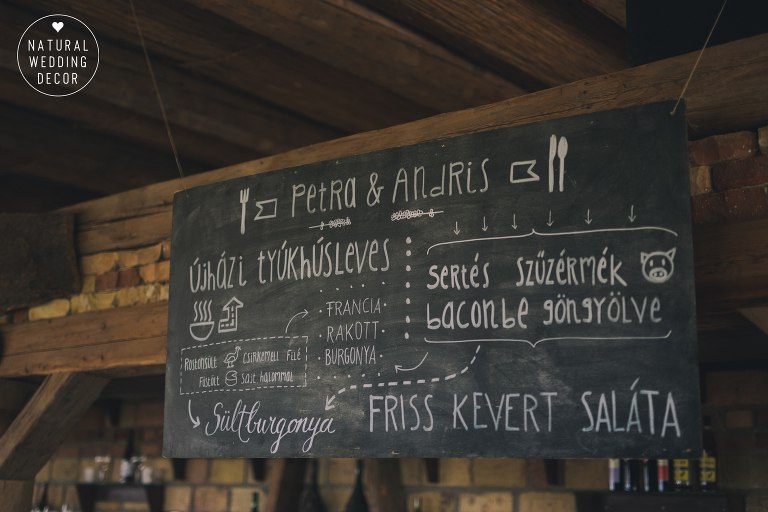 NATURAL
WEDDING
DECOR
Petra & Andris
Újházi tyúkhúsleves
sertés szűzérmék
baconbe göngyölve
FRANCIA
RAKOTT
BURGONYA
Rostonsült Csirkemell Filé
Füstölt Sajt halommal
Sültburgonya
FRISS KEVERT SALÁTA